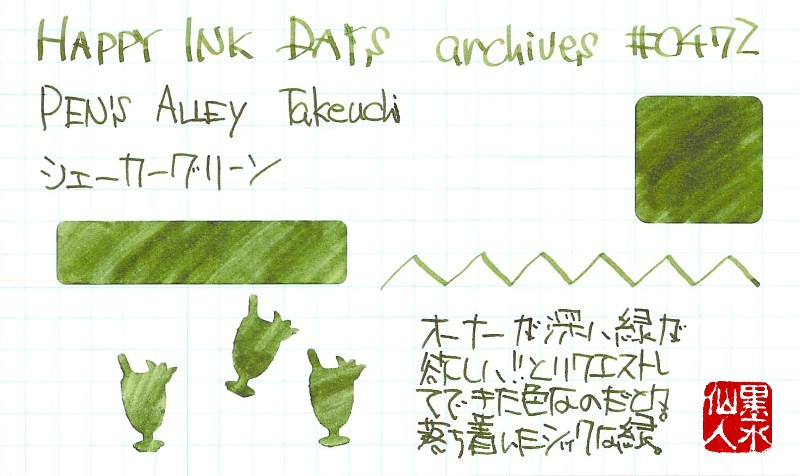 HAPPY INK DAYS archives #0472
PEN'S ALLEY Takeuchi
シェーカーグリーン
オーナーが深い緑が
欲しい!!とリクエストし
てできた色なのだとか。
落ち着いたシックな緑。
墨水
仙人